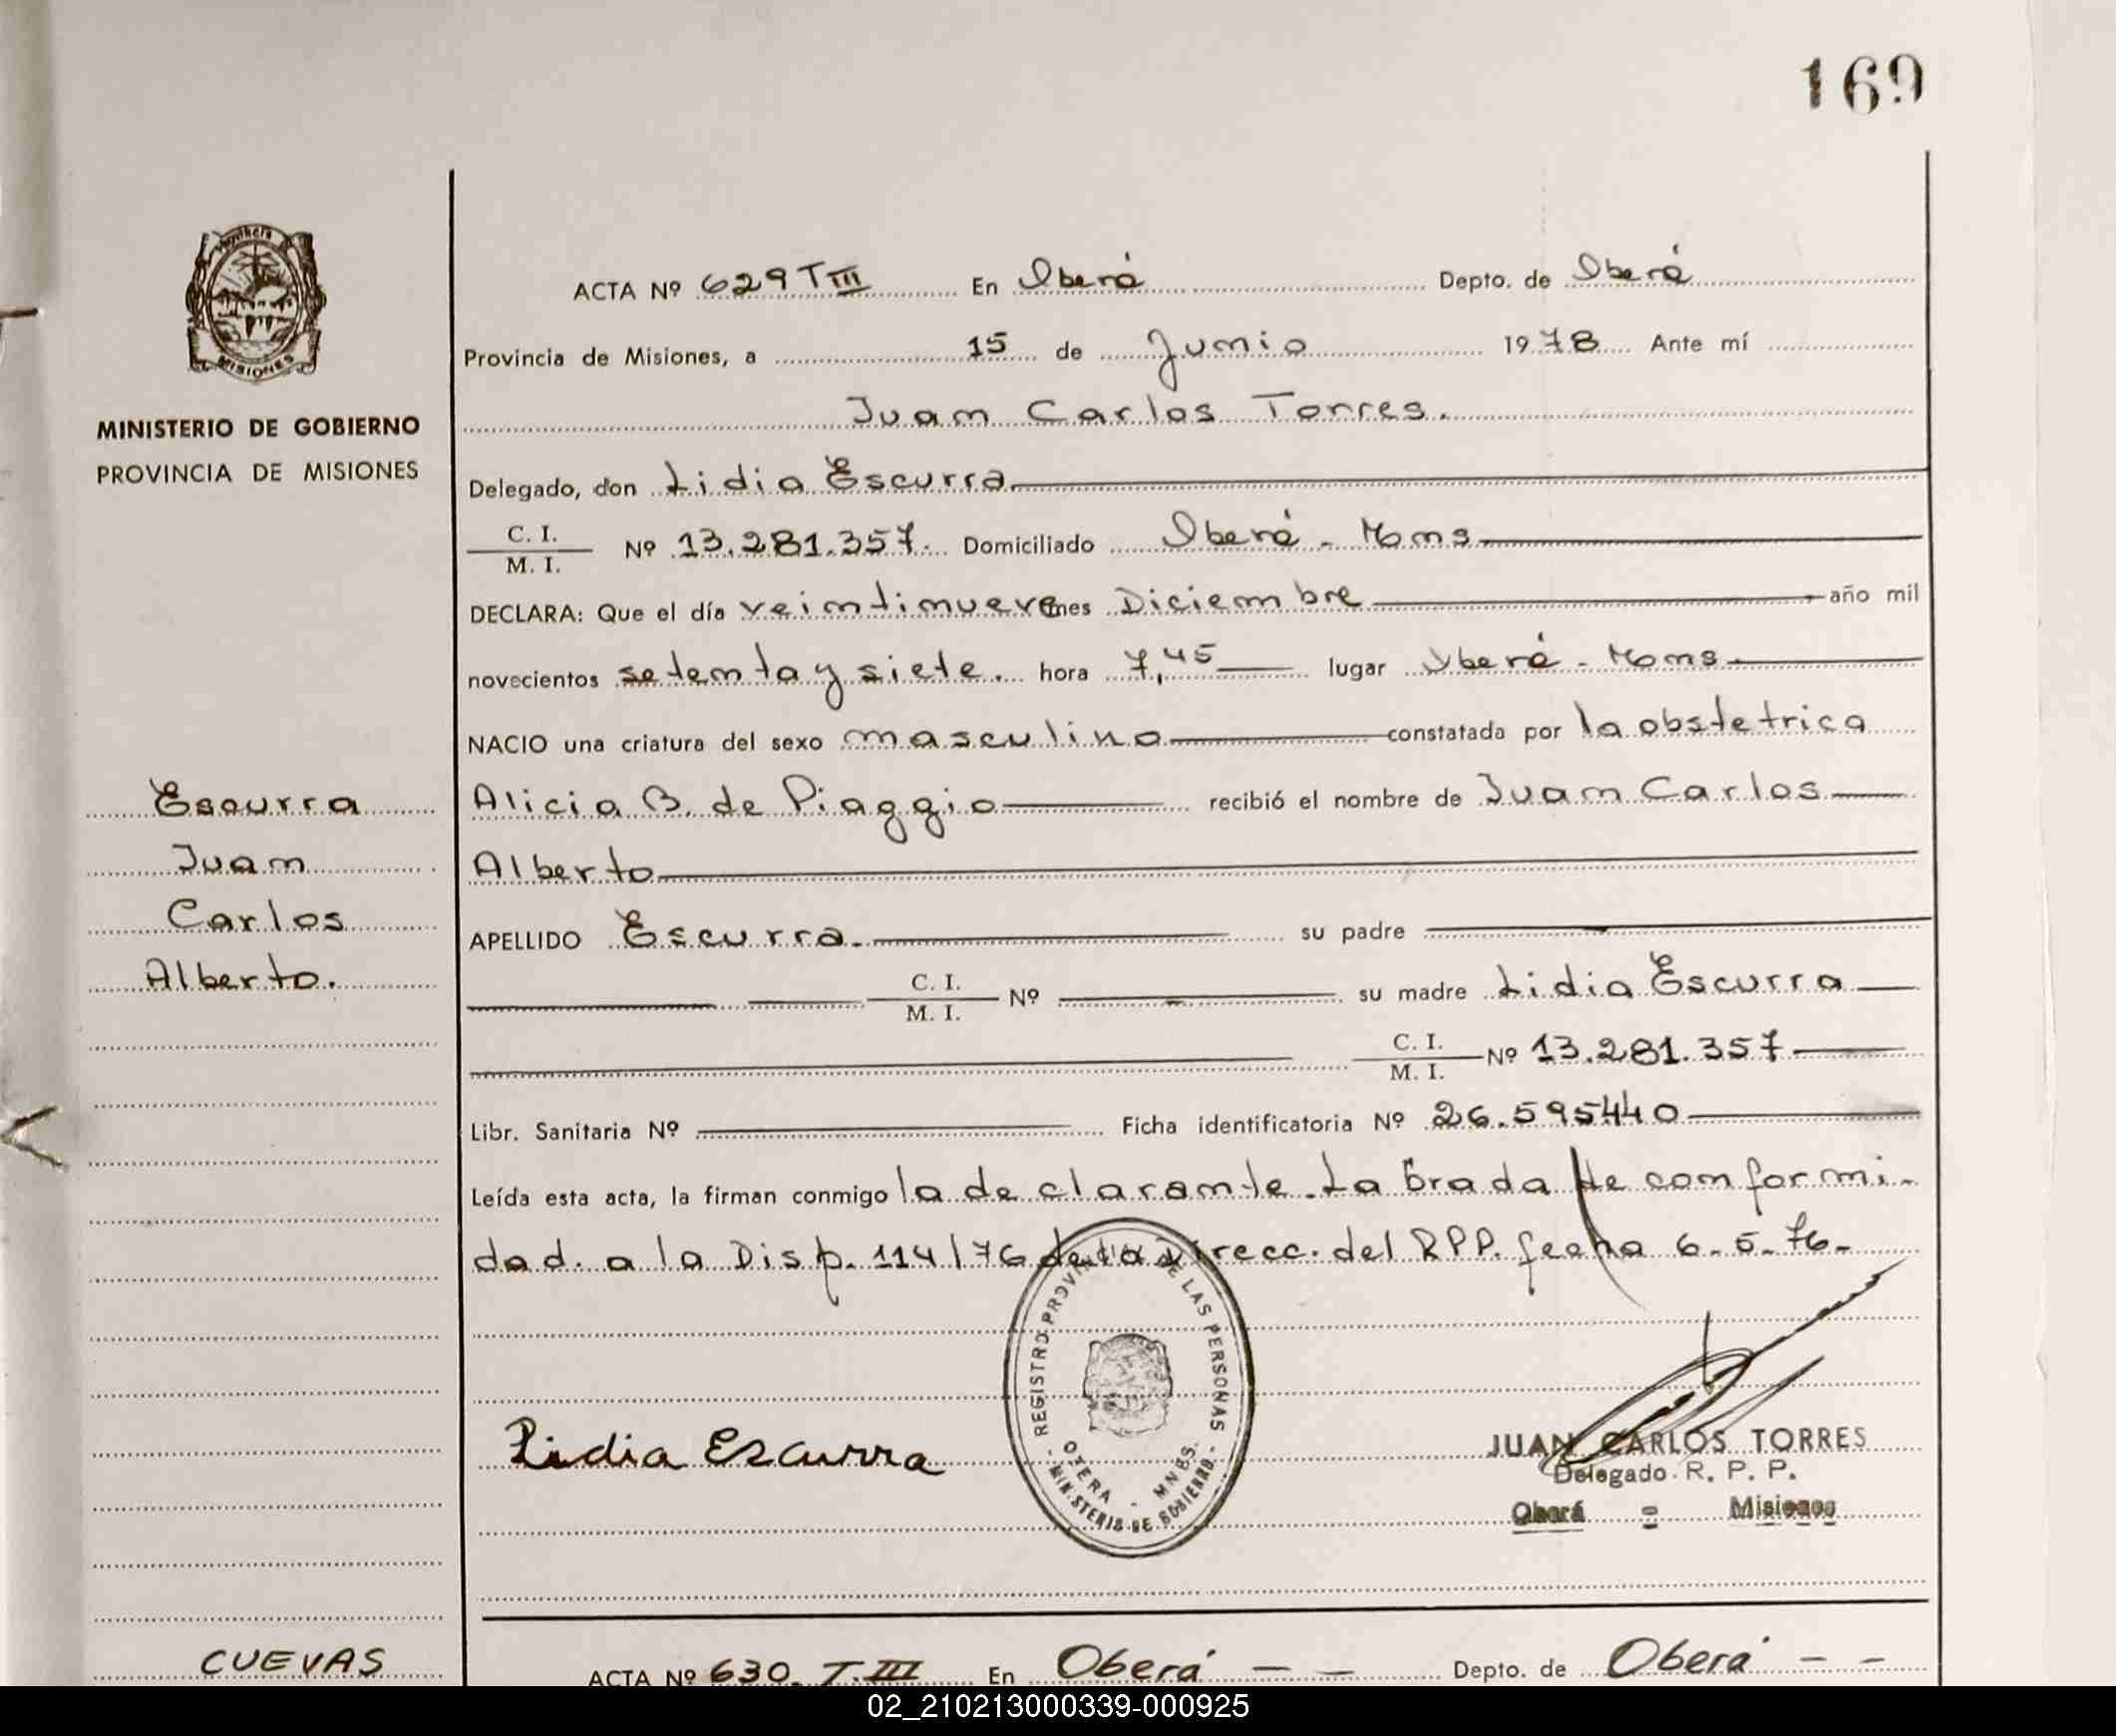 169
Provincia
MISIONES
MINISTERIO DE GOBIERNO
PROVINCIA DE MISIONES
ACTA Nº 629 T III En Oberá Depto. de Oberá
Provincia de Misiones, a 15 de Junio 1978 Ante mí
Juan Carlos Torres.
Delegado, don Lidia Escurra
C. I.
M. I. Nº 13.281.357. Domiciliado Oberá - Mnes
DECLARA: Que el día veintinueve mes Diciembre año mil
novecientos setenta y siete. hora 7,45 lugar Oberá - Mnes
NACIO una criatura del sexo masculino constatada por la obstetrica
Alicia B. de Piaggio recibió el nombre de Juan Carlos
Alberto
APELLIDO Escurra. su padre
C. I.
M. I. Nº su madre Lidia Escurra
C. I.
M. I. Nº 13.281.357
Libr. Sanitaria Nº Ficha identificatoria Nº 26.595440
Leída esta acta, la firman conmigo la declarante. Labrada de conformi-
dad. a la Disp. 114/76 de la Direcc. del RPP. fecha 6-5-76-
Escurra
Juan
Carlos
Alberto.
Lidia Escurra
REGISTRO PROVINCIAL DE LAS PERSONAS
OBERA - MNES.
MINISTERIO DE GOBIERNO
JUAN CARLOS TORRES
Delegado R. P. P.
Oberá - Misiones
CUEVAS
ACTA Nº 630. T. III En Oberá - - Depto. de Oberá - -
02_210213000339-000925